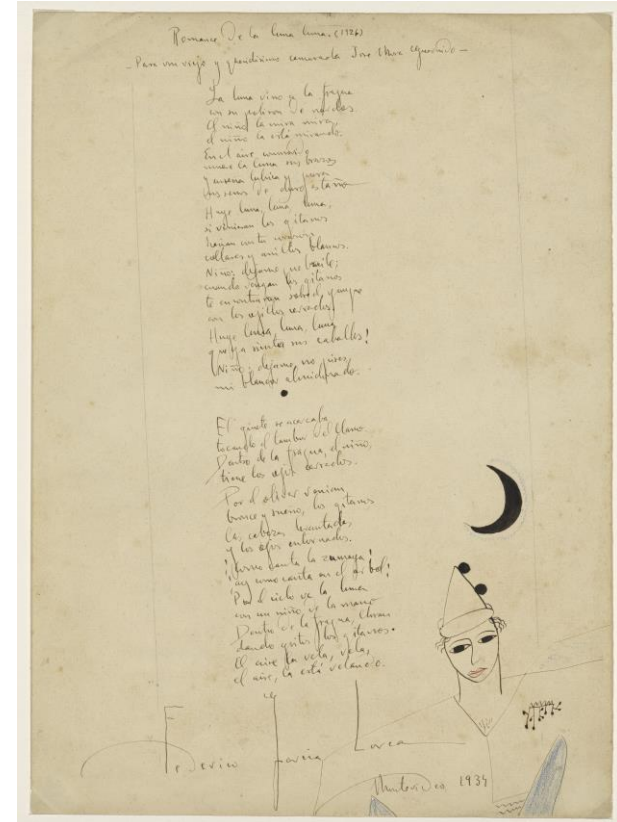 Romance de la luna luna. (1924)
— Para mi viejo y grandísimo camarada Jose Mora Guarnido —
La luna vino a la fragua
con su polison de nardos
el niño la mira mira,
el niño la está mirando.
En el aire conmovido
mueve la luna sus brazos
y enseña lubrica y pura
sus senos de duro estaño
Huye luna, luna, luna,
si vinieran los gitanos
harían con tu corazon
collares y anillos blancos.
Niño, dejame que baile;
cuando vengan los gitanos
te encontraran sobre el yunque
con los ojillos cerrados.
Huye luna, luna, luna
que ya siento sus caballos!
Niño; dejame, no pises,
mi blancor almidonado.
El ginete se acercaba
tocando el tambor del llano.
Dentro de la fragua, el niño,
tiene los ojos cerrados.
Por el olivar venian,
bronce y sueño, los gitanos
las cabezas levantadas,
y los ojos entornados.
¡Como canta la zumaya!
¡ay como canta en el arbol!
Por el cielo va la luna
con un niño, de la mano
Dentro de la fragua, lloran
dando gritos, los gitanos.
El aire la vela, vela,
el aire, la está velando.
Federico García Lorca
Montevideo 1934